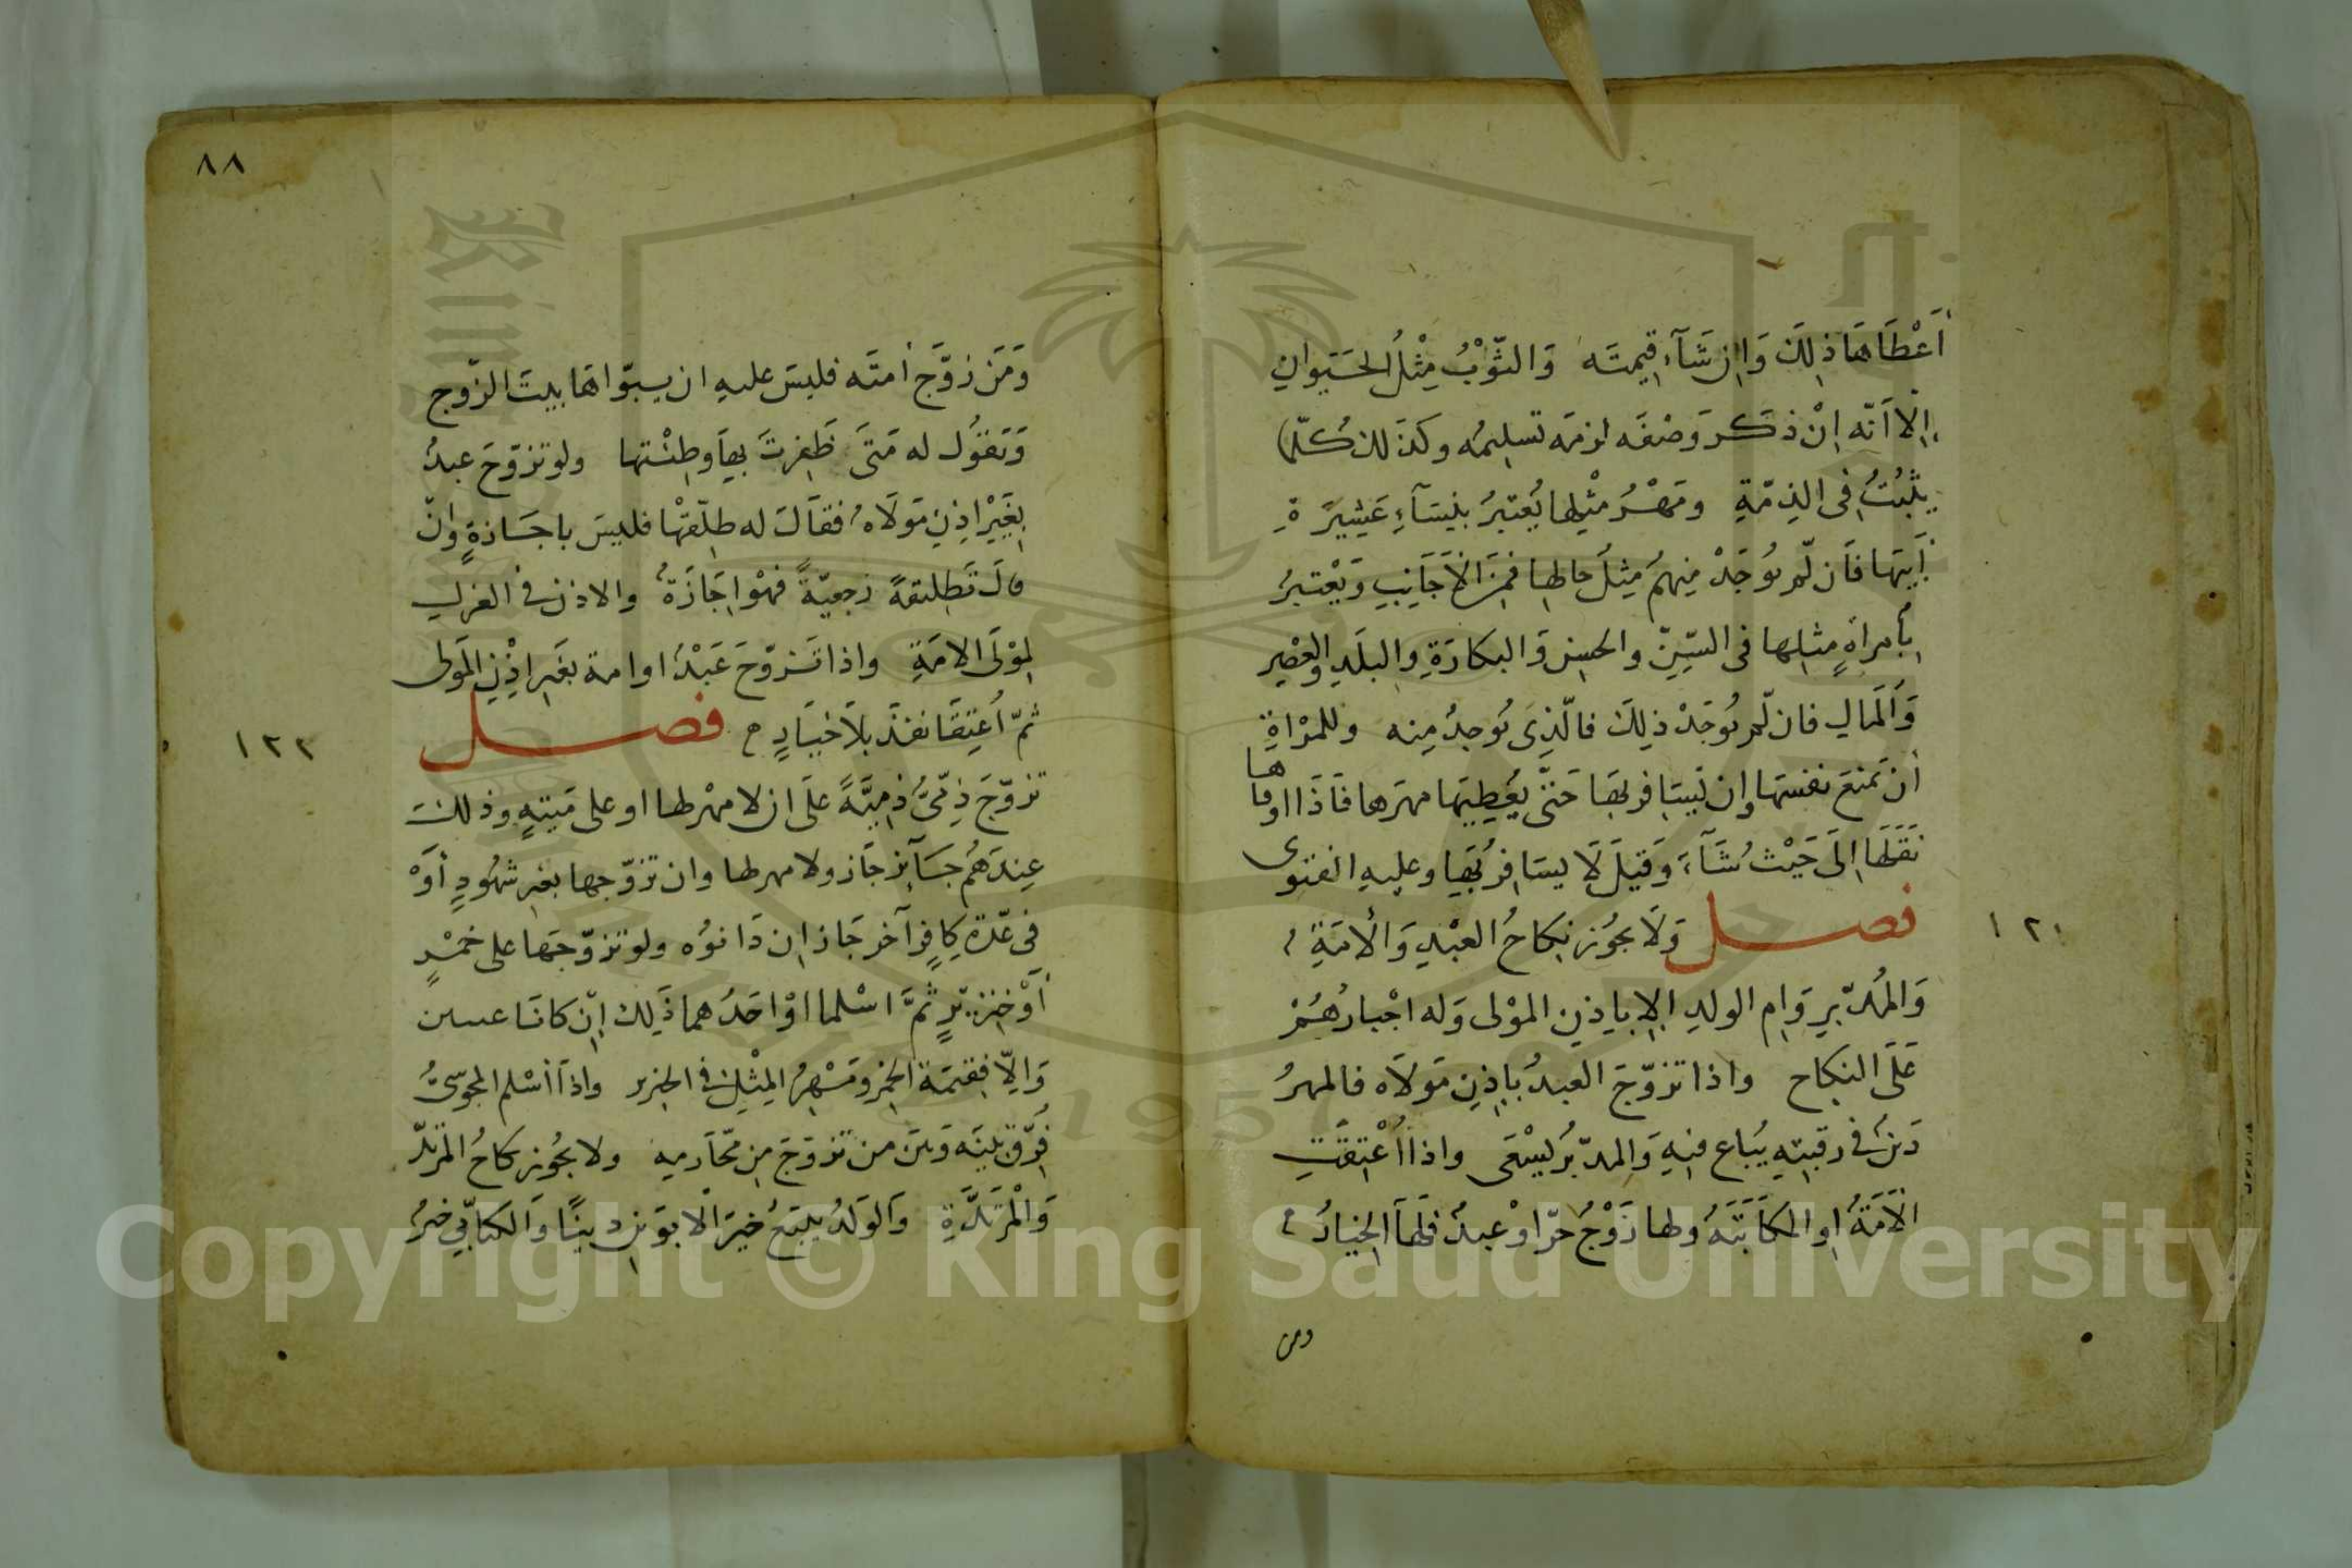 أَعْطَاهَا ذٰلِكَ وَاِنْ شَآءَ قِيمَتَه وَالثَّوْبُ مِثْلُ الحَيَوانِ
اِلّا اَنّه اِنْ ذكَرَ وَصْفَه لزمَه تسليمُه وكذَلك كُلّما
يثْبُتُ فى الذِمّةِ ومَهْرُ مِثْلِها يُعْتبرُ بنِسَآءِ عَشِيرَةِ
اَبيهَا فَان لّم يُوجَدْ مِنهمُ مِثلُ حالها فمِنَ الاَجَانِبِ وَيُعْتبرُ
بامراةٍ مثلِها فى السِّنِّ والحسنِ وَالبكارَةِ والبلَدِ والعصْرِ
وَالمَالِ فان لّم يُوجَدْ ذٰلِكَ فالّذِى يُوجدُ مِنه وللمرْاةِ
أن تمنعَ نفسَهَا وان يُسَافر بهَا حَتّى يُعْطِيَهَا مهرَها فَاذَا اوفاها
نقَلَهَا اِلَى حَيْثُ شَآءَ وَقيلَ لَا يسَافرُ بهَا وعليهِ الفتوى
١٢١
فصل وَلَا يجُوز نِكاحُ العبْدِ وَالاَمَةِ
وَالمُدبّرِ وَامِ الولدِ اِلا باِذنِ الموْلى وَله اجْبارُهُمْ
عَلَى النِكاحِ واذا تزوّجَ العبدُ باِذنِ مَولاَه فالمهرُ
دَينٌ فى رقبتِهِ يُباع فيهِ وَالمدبّرُ يسْعَى واذا اُعْتِقَتِ
الاَمَةُ اوِ المكاَتبَةُ ولها زَوْجٌ حرّ اوْ عبدٌ فلهَا الخِيارُ
ومن
٨٨
وَمَن زوَّج أمتَه فليسَ عليهِ ان يبوّاهَا بيتَ الزّوج
وَيَقوُل له مَتَى ظَفِرتَ بهَا وطِئْتها ولو تزوّجَ عبدٌ
بغَيْرِ اِذنِ مَولَاهُ فقالَ له طلّقهْا فليسَ باجَازةٍ وانْ
قالَ تَطليقةً رجعيّةً فهْو اِجَازَةٌ والاذن فى العزلِ
لموْلَى الامَةِ واذا تَزوّجَ عَبْدٌ او امة بغَير اِذْنِ المَولى
ثمّ اُعتِقَا نفذَ بِلاَ خيَارٍ فصل
١٢٢
تزوّجَ ذِمّىٌّ ذِميّةً علَى ان لا مهْر لها او على مَيتةٍ وذلك
عِندَهُم جَآئز جَاز ولا مهر لها وان تزوّجها بغيرِ شهُودٍ أوْ
فى عدّةِ كافرٍ آخر جَاز ان دَانوُه ولو تزوّجَها على خَمْرٍ
أوْ خِنزيرٍ ثمَّ اسْلما اوْ احَدُهما ذَلِك اِنْ كانَا عينين
وَاِلّا فقيمَة الخمْرِ ومَهْرُ المِثْلِ فى الخنزير واذا أسْلم المجوسىُّ
فُرّق بينَه وَبَينَ من تزوّجَ من مَحَارمِهِ ولا يجُوز نكاحُ المُرتدّ
وَالمُرْتَدَّةِ وَالوَلدُ يتبَعُ خيرَ الابوَينِ دِينًا وَالكتابىّ خيرٌ